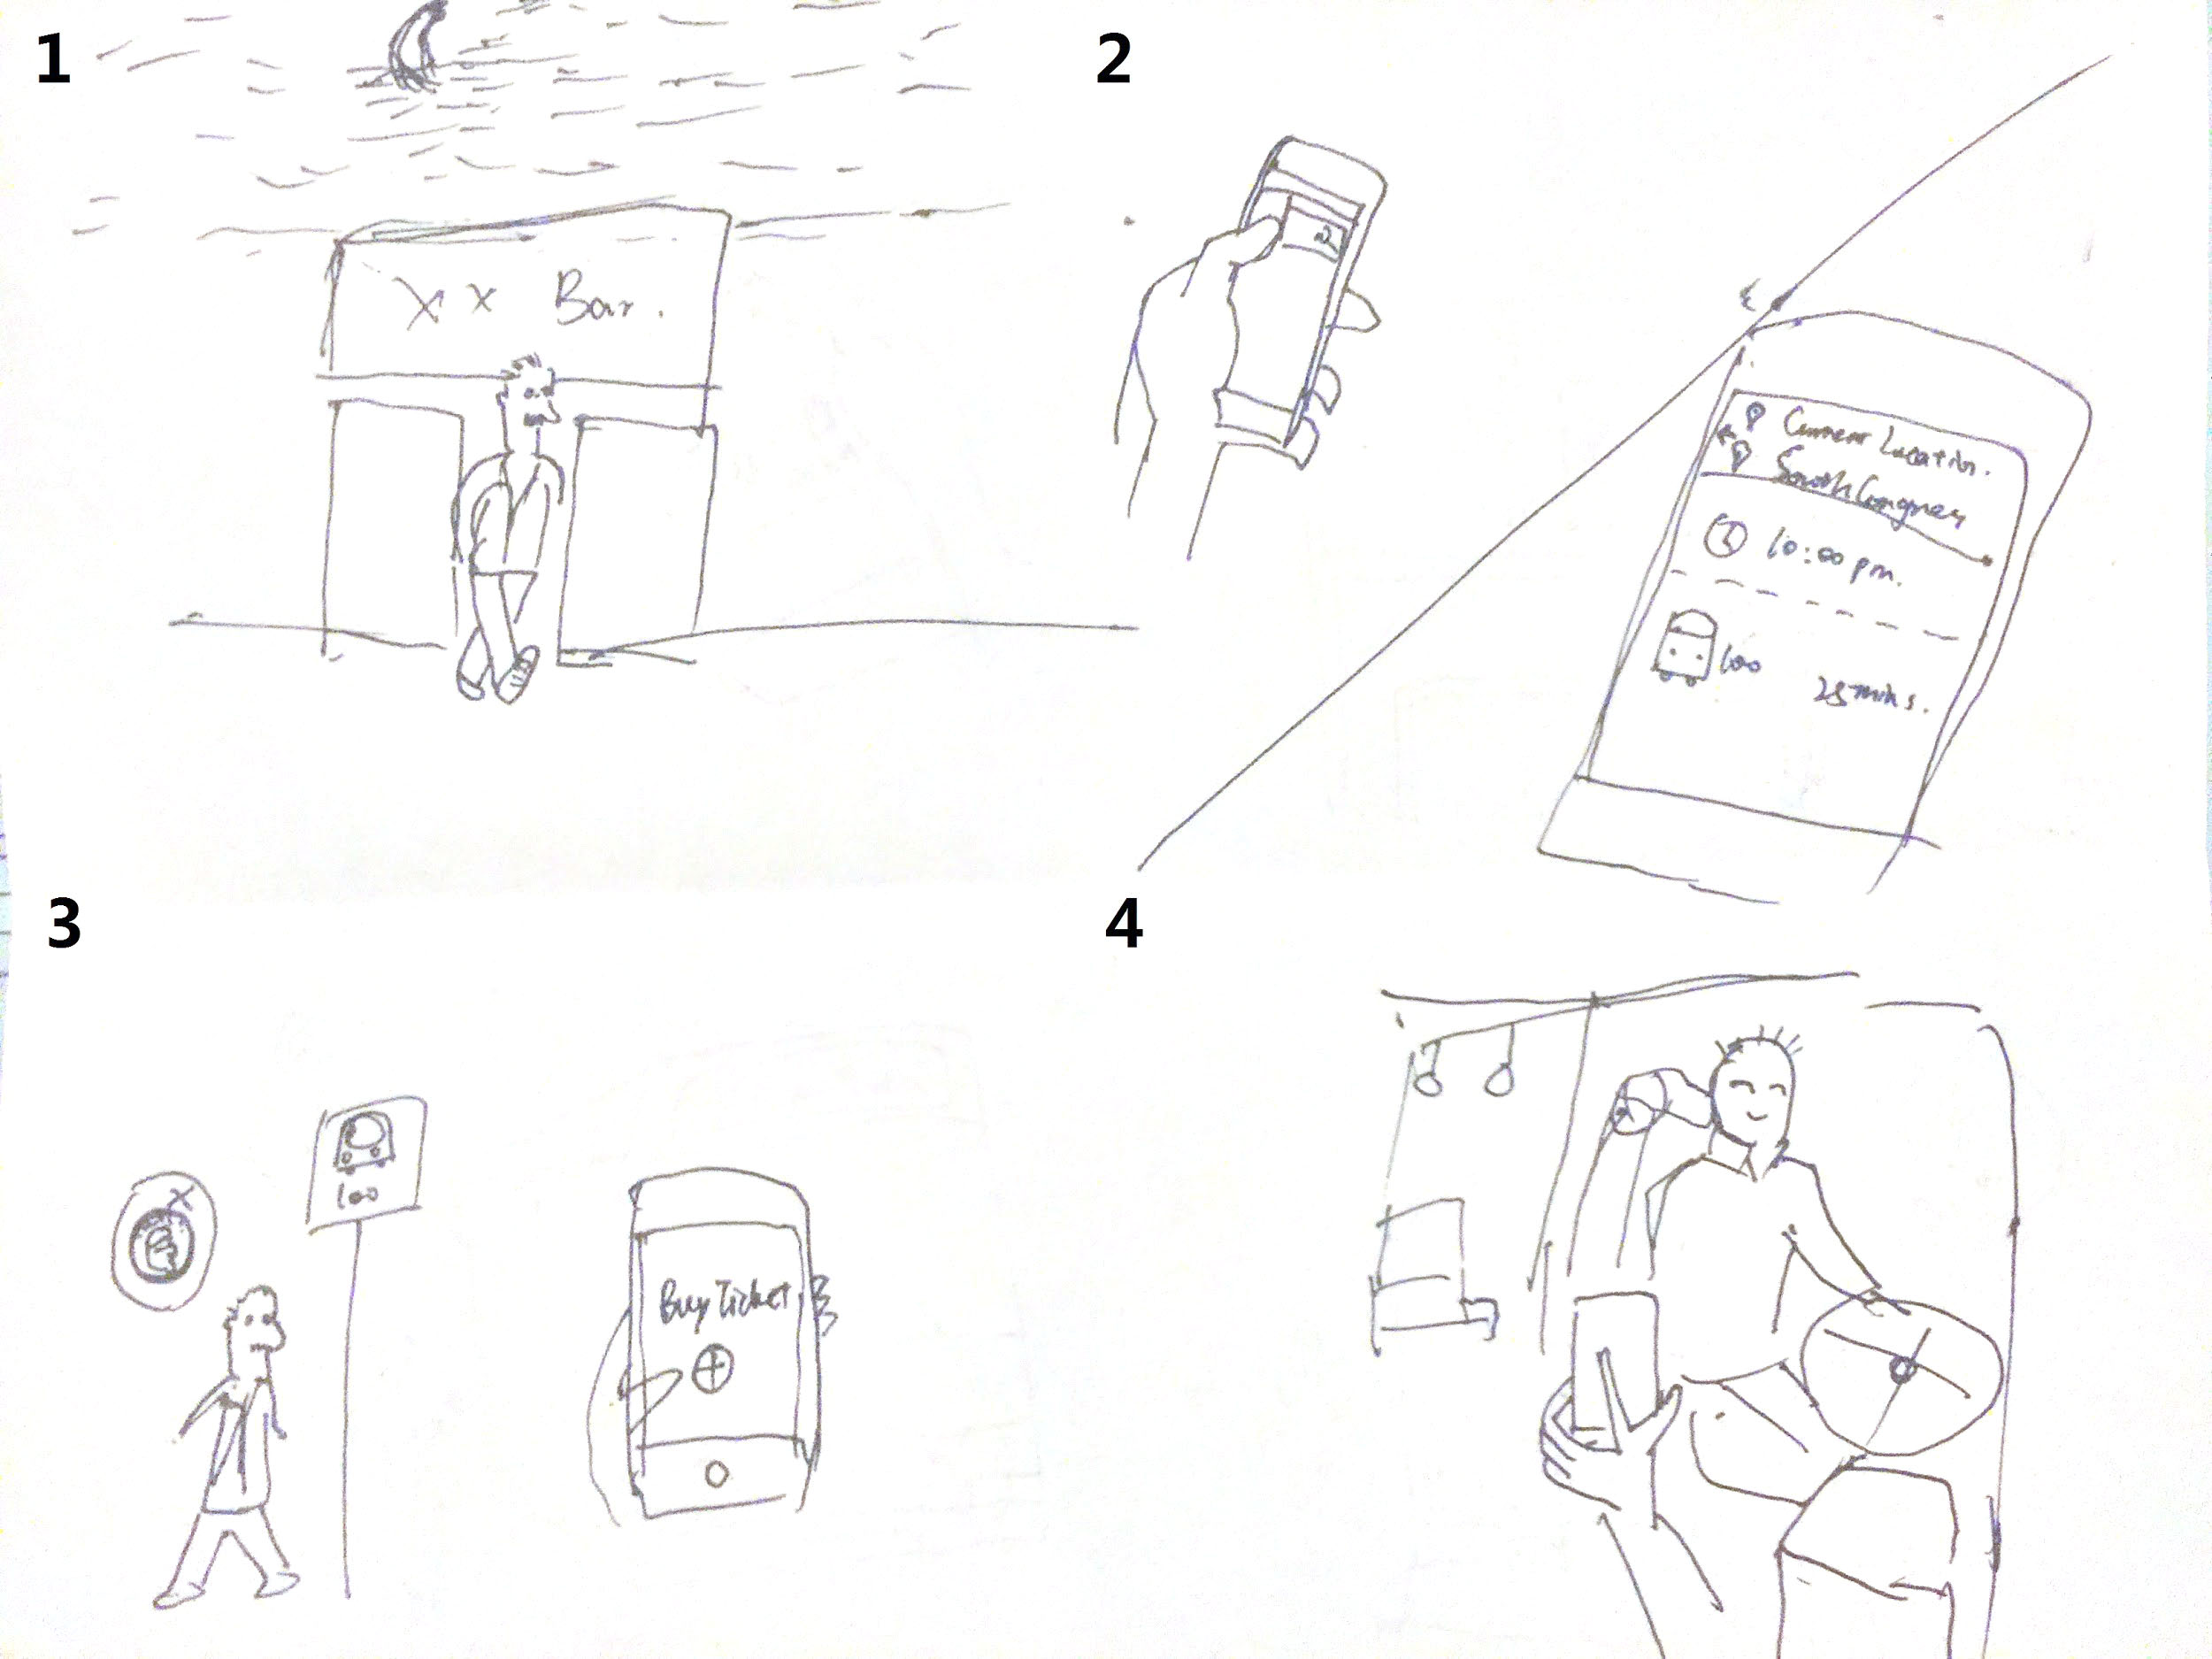 1
X X Bar.
2
Current Location.
South Congress
10:00 pm.
100
25 mins.
3
100
Buy Ticket
4